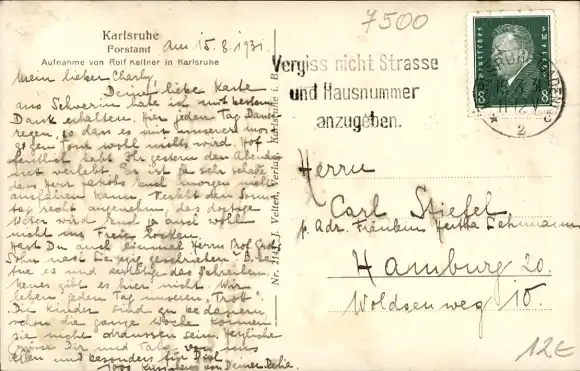 7500
Karlsruhe
Forstamt
Aufnahme von Rolf Kellner in Karlsruhe
am 15.8.1931.
Mein lieber Charly!
Deine liebe Karte
aus Schwerin habe ich mit bestem
Dank erhalten. Hier jeden Tag Dauer-
regen, so dass es mit unserer
Tour wohl nichts wird. Hof-
fentlich habt Ihr gestern den Abend
nett verlebt. Es ist ja sehr schade
dass Herr morgen nicht
kann. Verlebt den Sonn-
tag recht angenehm, das dortige
Wetter wird Euch ja auch wohl
nicht ins Freie locken.
Hast Du auch einmal Herrn Prof.
Sohn nach Leipzig geschrieben? Bitte
tue es und das Schreiben.
Neues gibt es hier nicht. Wir
leben jeden Tag unseren "Trott".
Die Kinder sind zu bedauern,
schon die ganze Woche können
sie nicht draussen sein. Herzliche
Grüsse Dir und von uns
allen und besonders für Dich
1000 Küsschen von Deiner
J. Velten, Verlag, Karlsruhe i. B.
Vergiss nicht Strasse
und Hausnummer
anzugeben.
Deutsches Reich
8 8
KARLSRUHE (BADEN)
2
Herrn
Carl Stiefel
p. Adr. Fräulein Hertha Lehmann
Hamburg 20.
Woldsenweg 10.
12€